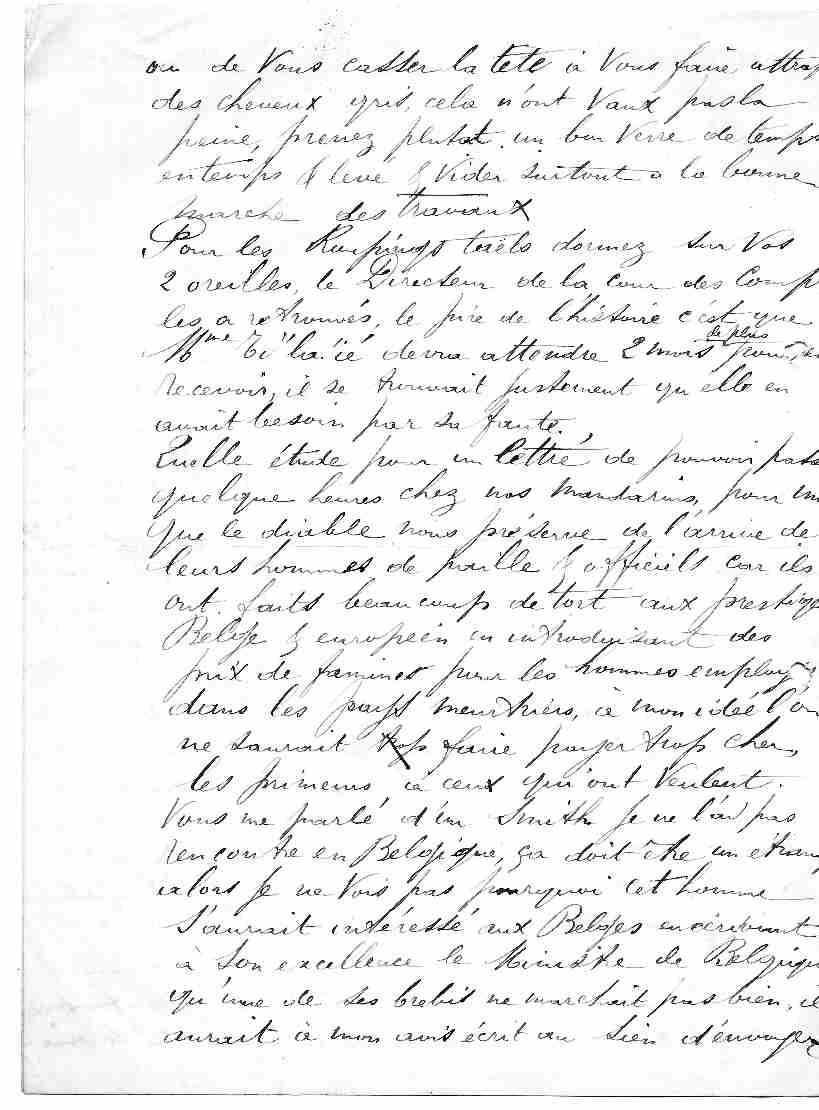 ou de Vous casser la tete à Vous faire attrap
des cheveux gris, cela n'ont Vaux pas la
peine, prenez plutot un bon Verre de temps
entemps & levé & Vider surtout a la bonne
marche des travaux
Pour les taëls dormez sur Vos
2 oreilles, le Directeur de la cour des Comp
les a retrouvés, le pire de l'histoire c'est que
de plus
Mme devra attendre 2 mois pour en
recevoir, il se trouvait justement qu'elle en
avait besoin par sa faute.
Quelle étude pour un lettré de pouvoir pass
quelque heures chez nos Mandarins, pour un
que le diable nous préserve de l'arrivé de
leurs hommes de paille & officiels car ils
ont faits beaucoup de tort aux prestige
Belge & européen en introduisant des
prix de famines pour les hommes employés
dans les pays meurtriers, à mon idéé l'on
ne saurait trop faire payer trop cher,
les primeurs à ceux qu'ont Veulent.
Vous me parlé d'un Smith Je ne l'ai pas
rencontre en Belgique, ça doit être un étran
alors Je ne Vois pas pourquoi cet homme
S'aurait intéressé aux Belges en écrivant
à Son excellence le Ministre de Belgique
qu'une de ses brebis ne marchait pas bien, il
aurait à mon avis écrit au Sien d'envoyer